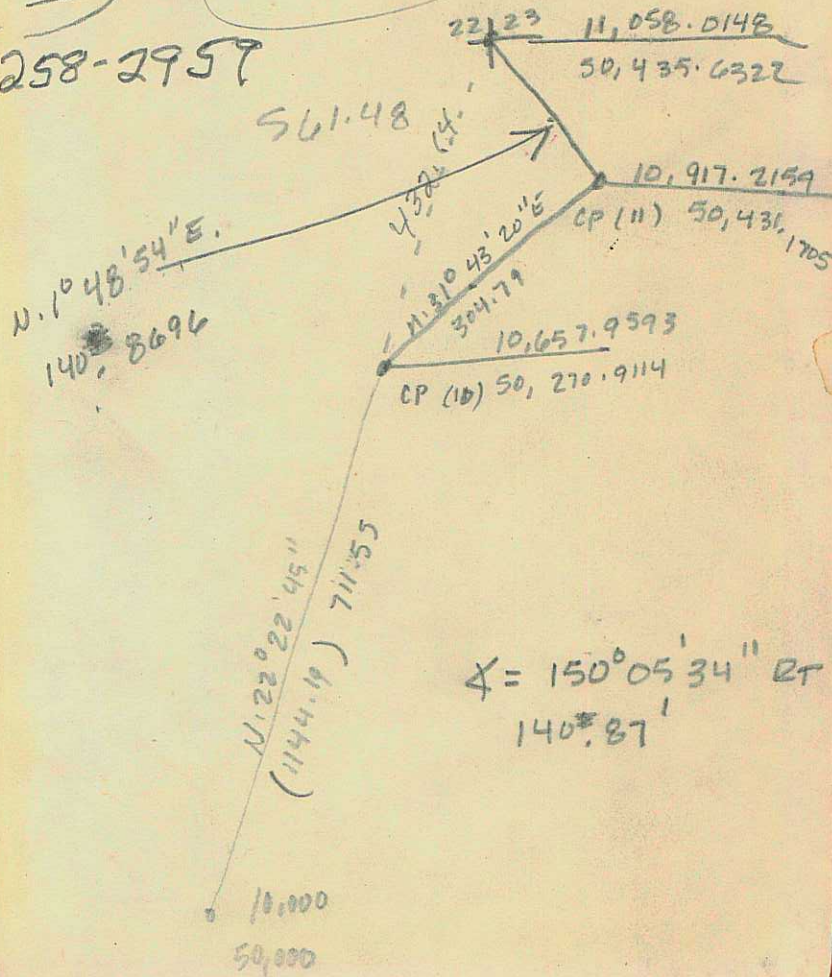 22 23 11,058.0148
50,435.6322
258-2959
561.48
432.64
10,917.2159
CP (11) 50,431.1705
N.1°48'54"E.
140.8696
N.31°43'20"E
304.79
10,657.9593
CP (10) 50,270.9114
N.22°22'45"
(1144.19) 711.55
∡ = 150°05'34" RT
140.87'
10,000
50,000